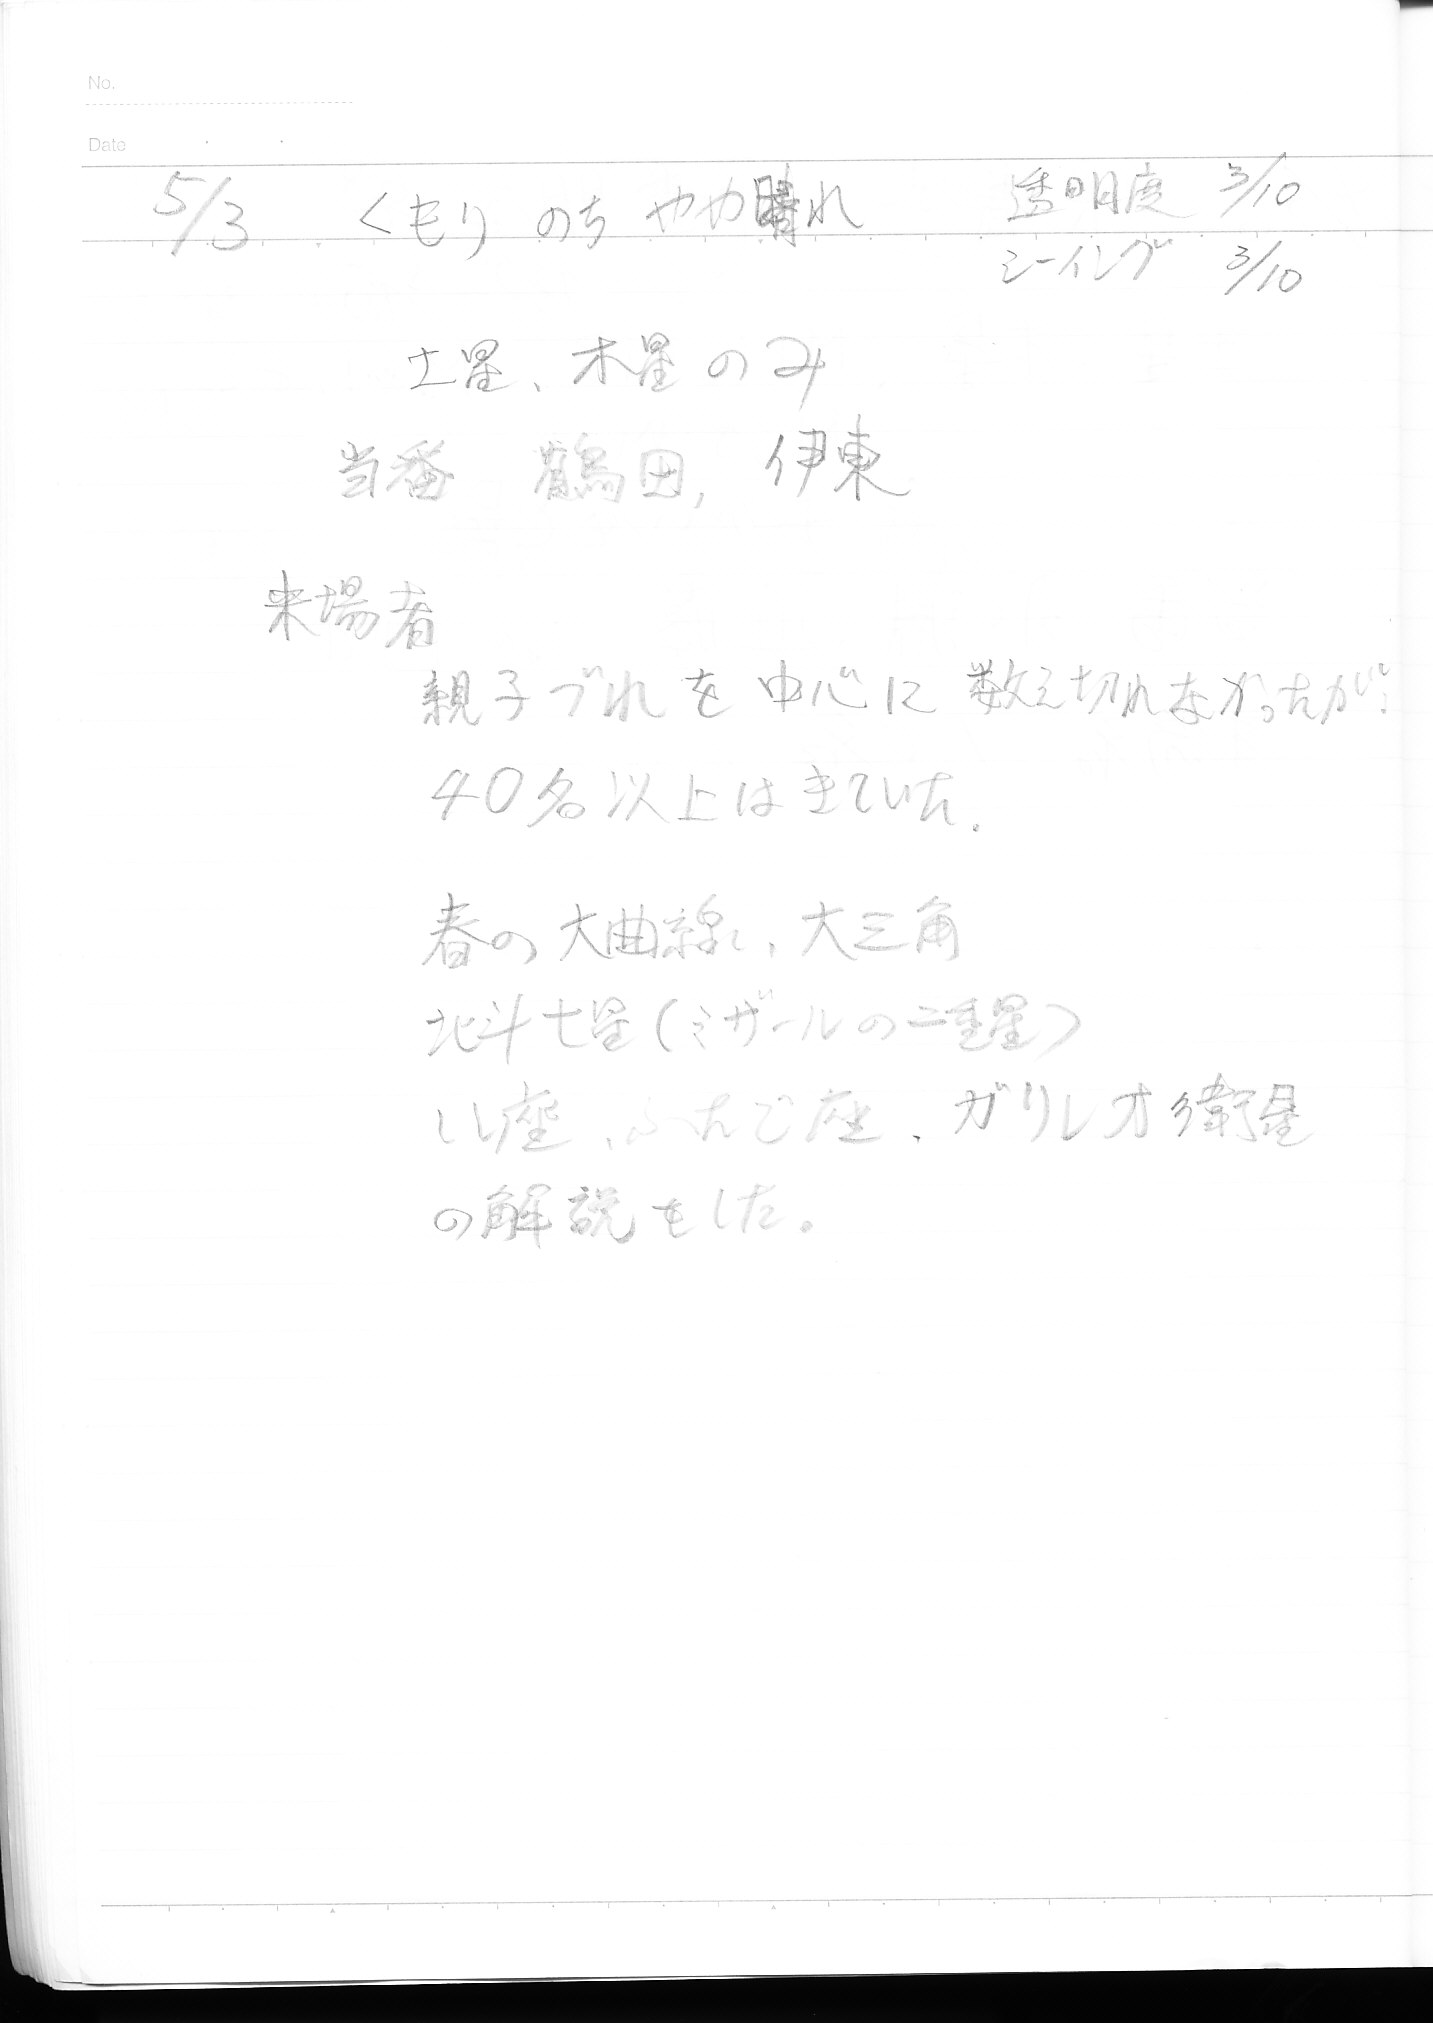 No.
Date
5/3 くもり のち やや晴れ 透明度 3/10
シーイング 3/10
土星、木星のみ
当番 鶴田, 伊東
来場者
親子づれを中心に数え切れなかったが、
40名以上はきていた.
春の大曲線、大三角
北斗七星(ミザールの二重星)
しし座、ふたご座、ガリレオ衛星
の解説をした。